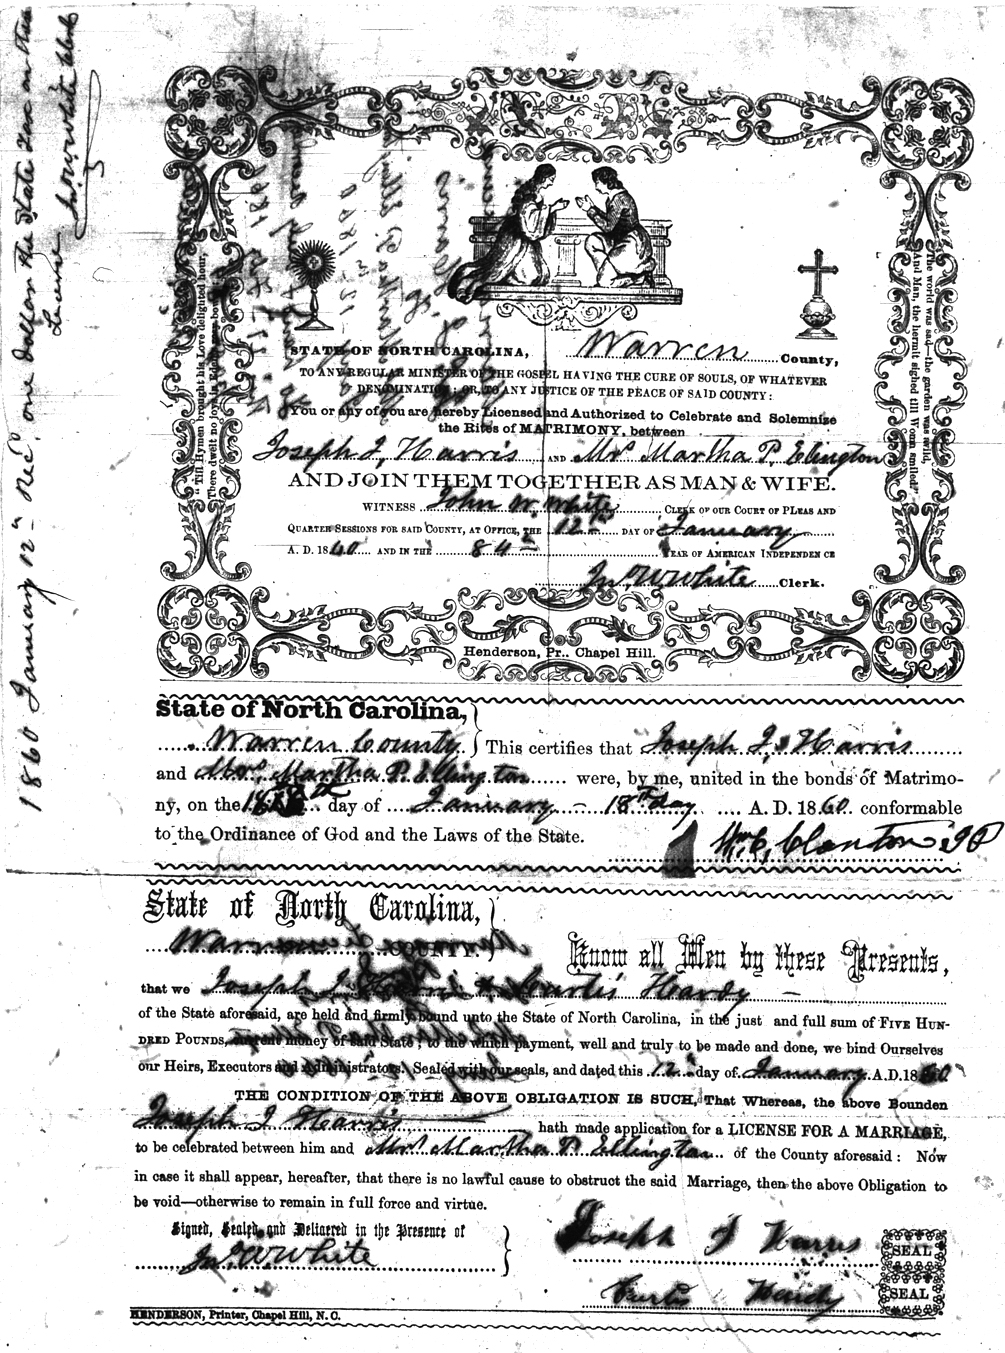 1860 January 12th Rec'd one dollar the State Tax on this
License Jno W White Clerk
"Till Hymen brought his Love delighted hour,
There dwelt no joy in Eden's rosy bower
The world was sad—the garden was a wild,
And Man, the hermit sighed till Woman smiled"
STATE OF NORTH CAROLINA, Warren County,
TO ANY REGULAR MINISTER OF THE GOSPEL HAVING THE CURE OF SOULS, OF WHATEVER
DENOMINATION; OR, TO ANY JUSTICE OF THE PEACE OF SAID COUNTY:
You or any of you are hereby Licensed and Authorized to Celebrate and Solemnize
the Rites of MATRIMONY, between
Joseph J. Harris AND Mrs Martha P. Elington
AND JOIN THEM TOGETHER AS MAN & WIFE.
WITNESS John W. White CLERK OF OUR COURT OF PLEAS AND
QUARTER SESSIONS FOR SAID COUNTY, AT OFFICE, THE 12th DAY OF January
A. D. 1860 AND IN THE 84th YEAR OF AMERICAN INDEPENDENCE
Jno W White Clerk.
Henderson, Pr.. Chapel Hill.
State of North Carolina,
Warren County } This certifies that Joseph J. Harris
and Mrs. Martha P. Ellington were, by me, united in the bonds of Matrimo-
ny, on the 18th day of January - 18th day A. D. 1860 conformable
to the Ordinance of God and the Laws of the State.
Wm C. Clanton JP
State of North Carolina,
Warren COUNTY. } Know all Men by these Presents,
that we Joseph J. Harris & Curtis Hardy
of the State aforesaid, are held and firmly bound unto the State of North Carolina, in the just and full sum of FIVE HUN-
DRED POUNDS, current money of said State; to the which payment, well and truly to be made and done, we bind Ourselves
our Heirs, Executors and Administrators. Sealed with our seals, and dated this 12 day of January A.D. 1860
THE CONDITION OF THE ABOVE OBLIGATION IS SUCH, That Whereas, the above Bounden
Joseph J Harris hath made application for a LICENSE FOR A MARRIAGE,
to be celebrated between him and Mrs Martha P Ellington of the County aforesaid: Now
in case it shall appear, hereafter, that there is no lawful cause to obstruct the said Marriage, then the above Obligation to
be void—otherwise to remain in full force and virtue.
Signed, Sealed, and Delivered in the Presence of
Jno W White
Joseph J Harris SEAL
Curtis Hardy SEAL
HENDERSON, Printer, Chapel Hill, N. C.